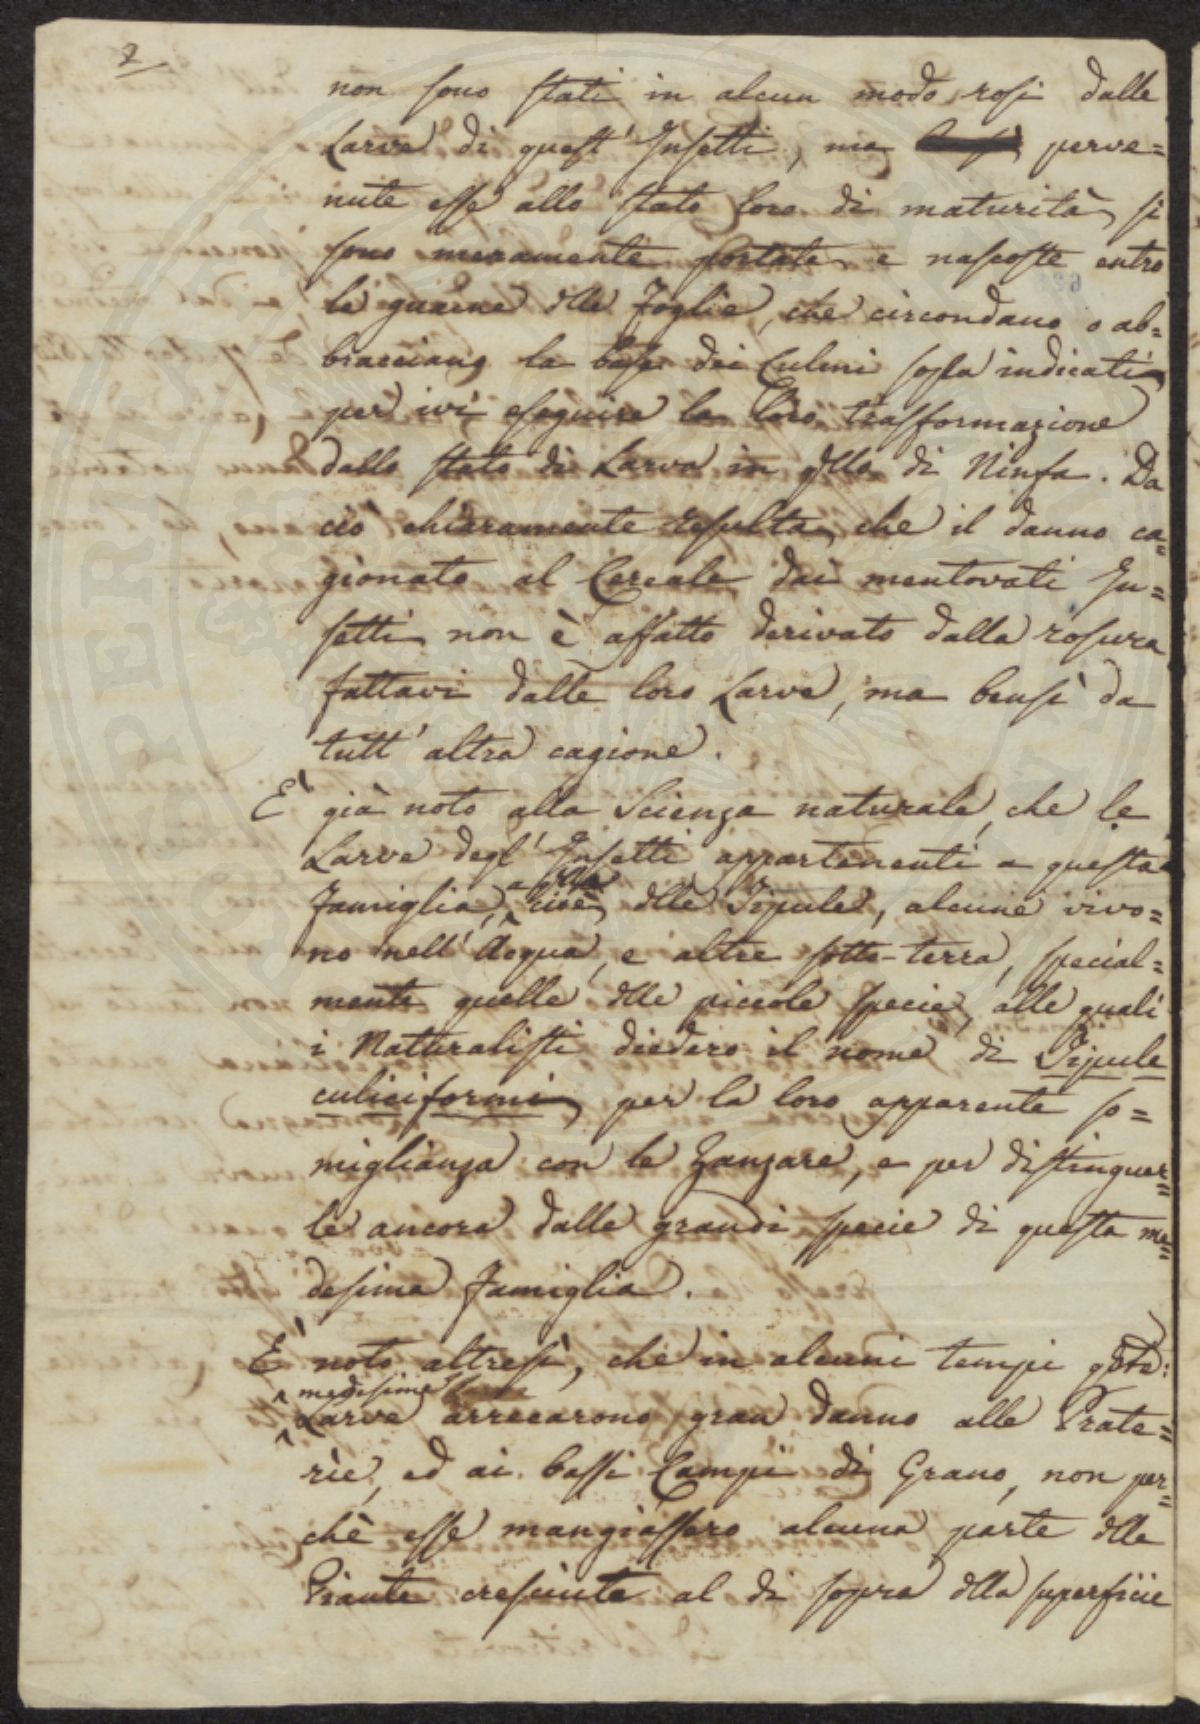 2
non sono stati in alcun modo rosi dalle
Larve di quest' Insetti, ma perve=
nute esse allo stato loro di maturità, si
sono meramente portate e nascoste entro
le guaine dlle Foglie, che circondano o ab=
bracciano la base dei Culmi sopra indicati
per ivi eseguire la loro trasformazione
dallo stato di Larva in qllo di Ninfa. Da
ciò chiaramente resulta, che il danno ca=
gionato al Cereale dai mentovati In=
setti non è affatto derivato dalla rosura
fattavi dalle loro Larve, ma bensì da
tutt' altra cagione.
E' già noto alla Scienza naturale, che le
Larve degl' Insetti appartenenti a questa
Famiglia, cioè dlle Tipule, alcune vivo=
no nell' Acqua, e altre sotto-terra, special=
mente quelle dlle piccole specie, alle quali
i Naturalisti diedero il nome di Tipule
culiciformi, per la loro apparente so=
miglianza con le Zanzare, e per distinguer=
le ancora dalle grandi specie di questa me=
desima Famiglia.
E' noto altresì, che in alcuni tempi qste:
medesime
Larve arrecarono gran danno alle Prate=
rie, ed ai bassi Campi di Grano, non per=
chè esse mangiassero alcuna parte dlle
Piante cresciute al di sopra dlla superficie